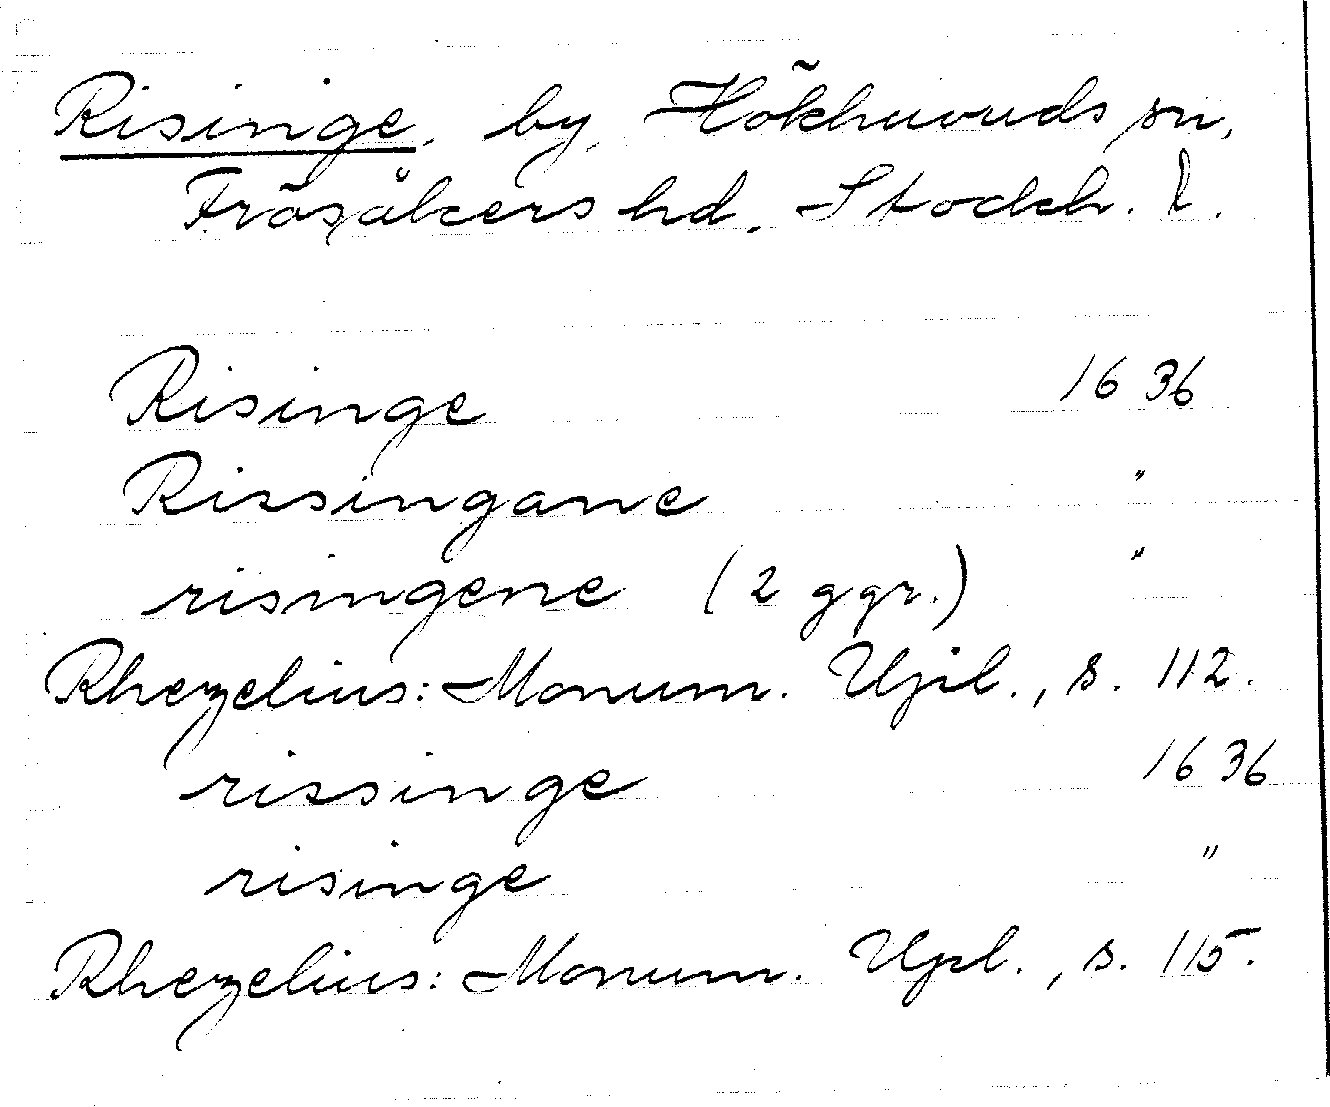 Risinge, by, Hökhuvuds sn,
Frösåkers hd. Stockh. l.
Risinge 1636
Rissingane "
risingene (2 ggr.) "
Rhezelius: Monum. Upl., s. 112.
rissinge 1636
risinge "
Rhezelius: Monum. Upl., s. 115.